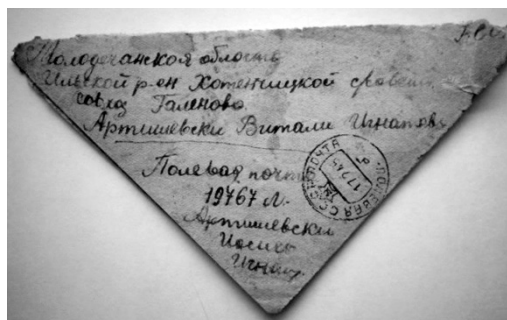 Молодечанской области
Ильской р-ен Хотенчицкой
совхоз Галеново.
Артишевски Витали Игнатов
Полевая почт
19767 М.
Артишевски
Иосиф
Игнац
ПОЛЕВАЯ ПОЧТА